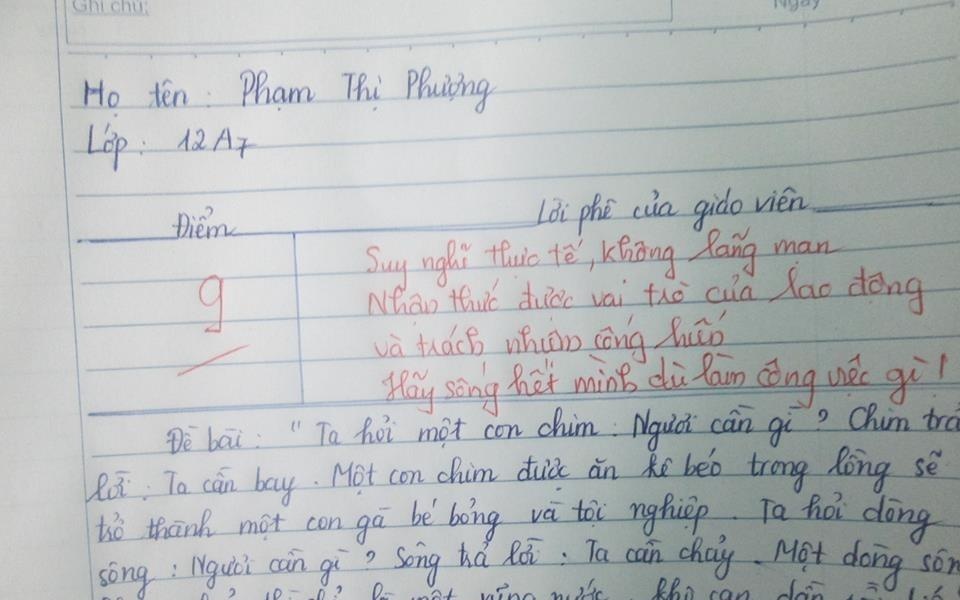 Ghi chú:
Ngày
Họ tên : Phạm Thị Phượng
Lớp : 12A7
Điểm
Lời phê của giáo viên
9
Suy nghĩ thực tế, không lãng mạn
Nhận thức được vai trò của lao động
và trách nhiệm cống hiến
Hãy sống hết mình dù làm công việc gì!
Đề bài : " Ta hỏi một con chim : Ngươi cần gì ? Chim trả
lời : Ta cần bay . Một con chim được ăn kê béo trong lồng sẽ
trở thành một con gà bé bỏng và tội nghiệp . Ta hỏi dòng
sông : Ngươi cần gì ? Sông trả lời : Ta cần chảy . Một dòng sông